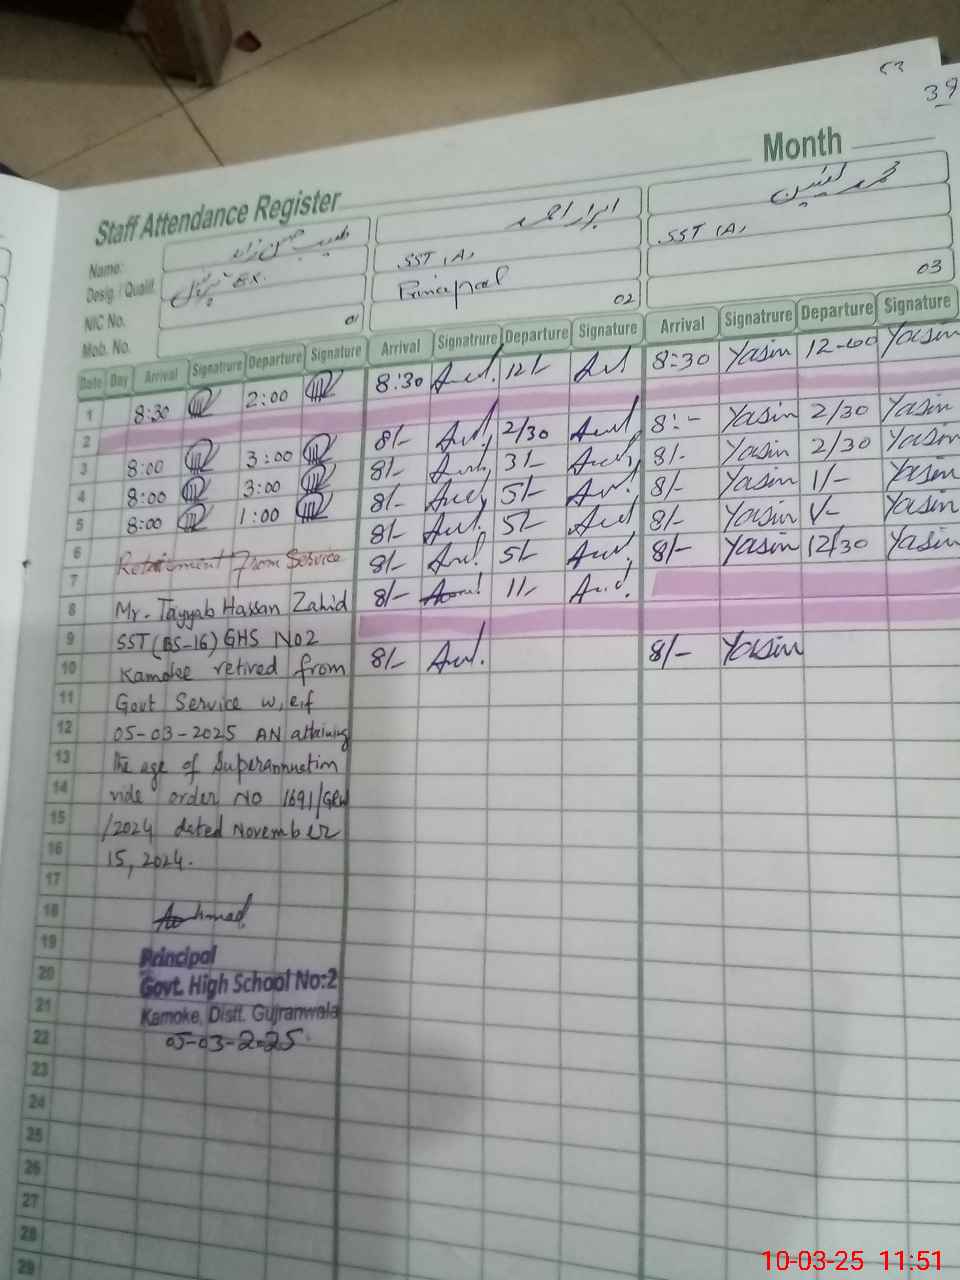 53
39
Month
Staff Attendance Register
Name: طیب حسن زاہد ابرار احمد محمد یٰسین
Desig. / Qualif. Ex. پرنسپل SST (A), SST (A),
NIC No. Principal
Mob. No. 01 02 03
Date Day Arrival Signatrure Departure Signature Arrival Signatrure Departure Signature Arrival Signatrure Departure Signature
1 8:30 2:00 8:30 12/- 8:30 Yasin 12-00 Yasin
2
3 8:00 3:00 8/- 2/30 8:- Yasin 2/30 Yasin
4 8:00 3:00 8/- 3/- 8/- Yasin 2/30 Yasin
5 8:00 1:00 8/- 5/- 8/- Yasin 1/- Yasin
6 Retirement From Service 8/- 5/- 8/- Yasin Yasin
7 8/- 5/- 8/- Yasin 12/30 Yasin
8 Mr. Tayyab Hassan Zahid 8/- 11/-
9 SST (BS-16) GHS No2
10 Kamoke retired from 8/- 8/- Yasin
11 Govt Service w.e.f
12 05-03-2025 AN attaining
13 the age of Superannuction
14 vide order No 1691/GRW
15 /2024 dated November
16 15, 2024.
17
18 Ahmad
19
20 Principal
21 Govt. High School No:2
22 Kamoke, Distt. Gujranwala
05-03-2025
23
24
25
26
27
28
29
10-03-25 11:51